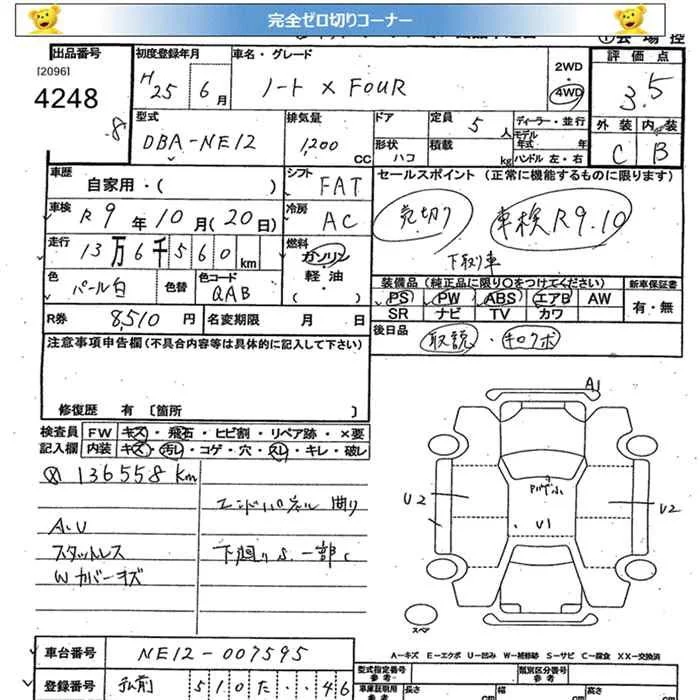 完全ゼロ切りコーナー
出品番号
[2096]
4248
初度登録年月
H25 6月
車名・グレード
ノート X FOUR
2WD・4WD
評価点
3.5
外装 内装
C B
型式
DBA-NE12
排気量
1,200 CC
ドア
定員 5人
形状 ハコ
積載 kg
ディーラー・並行
モデル年式 年式
ハンドル 左・右
車歴
自家用・( )
シフト
FAT
セールスポイント (正常に機能するものに限ります)
売切り
車検R9.10
下取り車
車検
R9年10月(20日)
冷房
AC
走行
13万6千560km
燃料
ガソリン
軽・油
( )
色
パール白
色替
色コード
QAB
装備品 (純正品に限り○をつけてください)
PS PW ABS エアB AW
SR ナビ TV カワ
新車保証書
有・無
R券 8,510円
名変期限 月 日
後日品
取説・キロクボ
注意事項申告欄 (不具合内容等は具体的に記入して下さい)
修復歴 有 [箇所 ]
検査員記入欄
FW キズ・飛石・ヒビ割・リペア跡・×要
内装 キズ・汚レ・コゲ・穴・スレ・キレ・破レ
136558km
A.U
スタットレス
Wカバーキズ
エンドパネル曲り
下廻りS.一部C
A1
U2
U1
U2
スペア
A-キズ E-エクボ U-凹み W-補修跡 S-サビ C-腐食 XX-交換済
車台番号
NE12-007595
登録番号
510た・・46
型式指定番号
参考
類別区分番号
参考
車庫証明用
参考
長さ cm
幅 cm
高さ cm